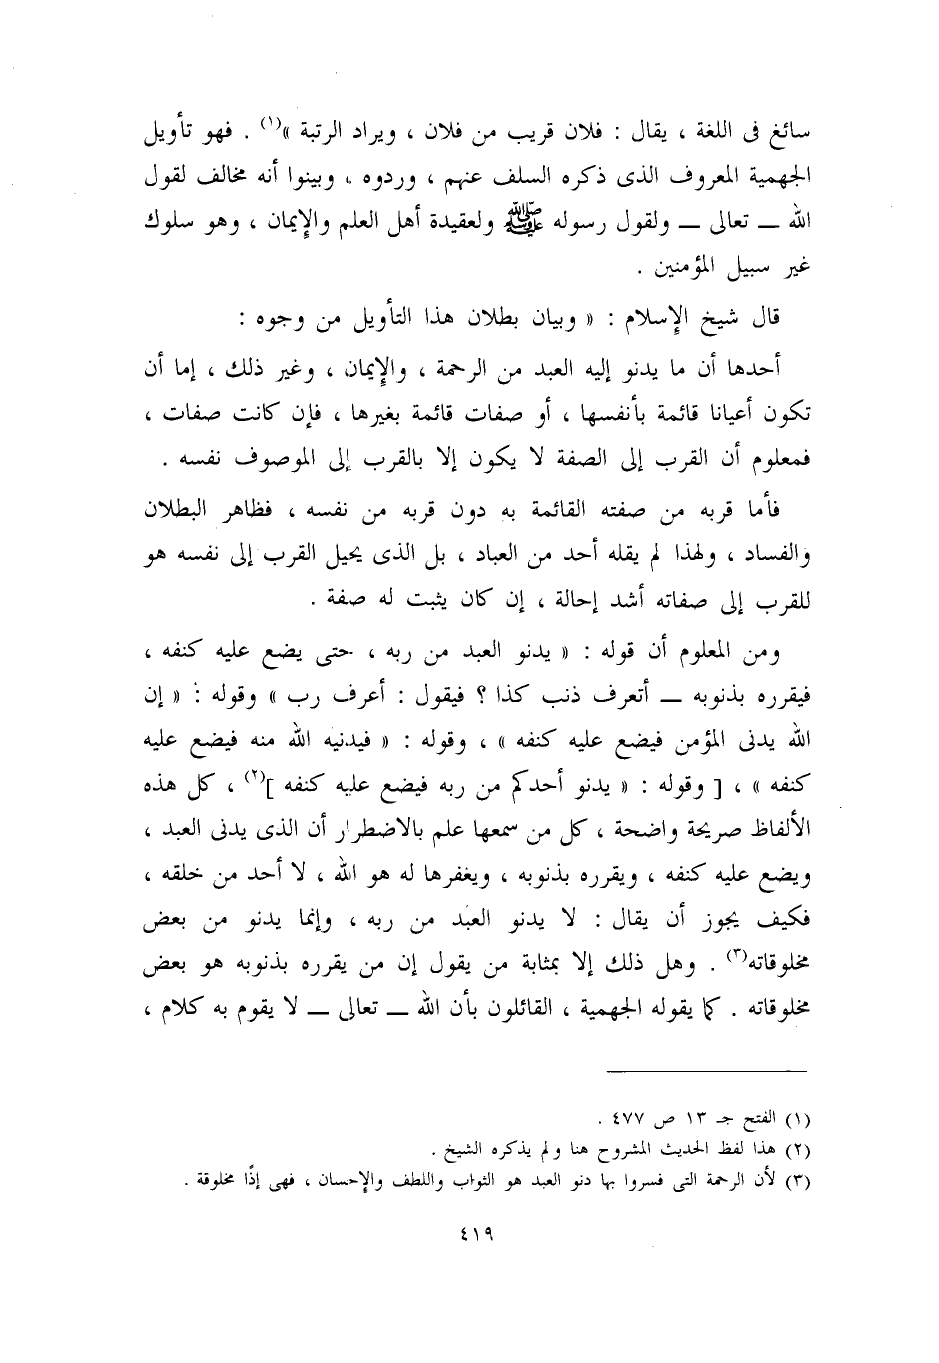 سائغ فى اللغة ، يقال : فلان قريب من فلان ، ويراد الرتبة »(١) . فهو تأويل
الجهمية المعروف الذى ذكره السلف عنهم ، وردوه ، وبينوا أنه مخالف لقول
الله ــ تعالى ــ ولقول رسوله ﷺ ولعقيدة أهل العلم والإيمان ، وهو سلوك
غير سبيل المؤمنين .
قال شيخ الإسلام : « وبيان بطلان هذا التأويل من وجوه :
أحدها أن ما يدنو إليه العبد من الرحمة ، والإيمان ، وغير ذلك ، إما أن
تكون أعيانا قائمة بأنفسها ، أو صفات قائمة بغيرها ، فإن كانت صفات ،
فمعلوم أن القرب إلى الصفة لا يكون إلا بالقرب إلى الموصوف نفسه .
فأما قربه من صفته القائمة به دون قربه من نفسه ، فظاهر البطلان
والفساد ، ولهذا لم يقله أحد من العباد ، بل الذى يحيل القرب إلى نفسه هو
للقرب إلى صفاته أشد إحالة ، إن كان يثبت له صفة .
ومن المعلوم أن قوله : « يدنو العبد من ربه ، حتى يضع عليه كنفه ،
فيقرره بذنوبه ــ أتعرف ذنب كذا ؟ فيقول : أعرف رب » وقوله : « إن
الله يدنى المؤمن فيضع عليه كنفه » ، وقوله : « فيدنيه الله منه فيضع عليه
كنفه » ، [ وقوله : « يدنو أحدكم من ربه فيضع عليه كنفه ](٢) ، كل هذه
الألفاظ صريحة واضحة ، كل من سمعها علم بالاضطرار أن الذى يدنى العبد ،
ويضع عليه كنفه ، ويقرره بذنوبه ، ويغفرها له هو الله ، لا أحد من خلقه ،
فكيف يجوز أن يقال : لا يدنو العبد من ربه ، وإنما يدنو من بعض
مخلوقاته(٣) . وهل ذلك إلا بمثابة من يقول إن من يقرره بذنوبه هو بعض
مخلوقاته . كما يقوله الجهمية ، القائلون بأن الله ــ تعالى ــ لا يقوم به كلام ،
(١) الفتح جـ ١٣ ص ٤٧٧ .
(٢) هذا لفظ الحديث المشروح هنا ولم يذكره الشيخ .
(٣) لأن الرحمة التى فسروا بها دنو العبد هو الثواب واللطف والإحسان ، فهى إذًا مخلوقة .
٤١٩